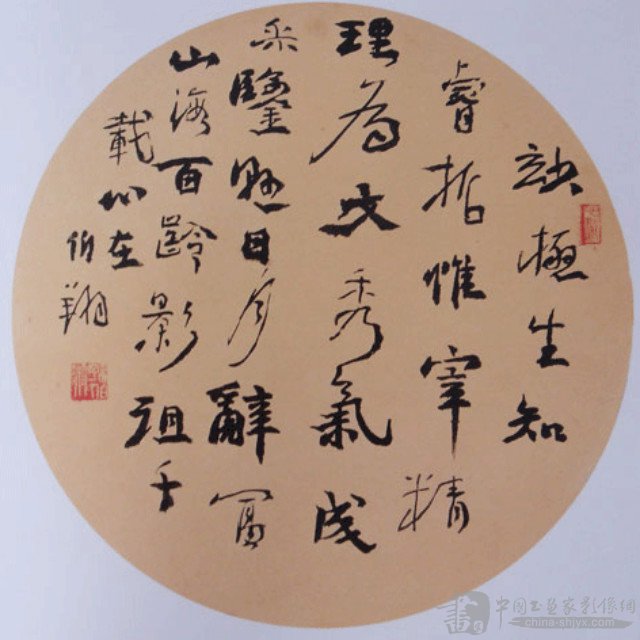 妙極生知
睿哲惟宰精
理為文秀氣成
采鑒懸日月辭富
山海百齡影徂千
載心在
伯翔
中國书画家影像網
china-shjyx.com